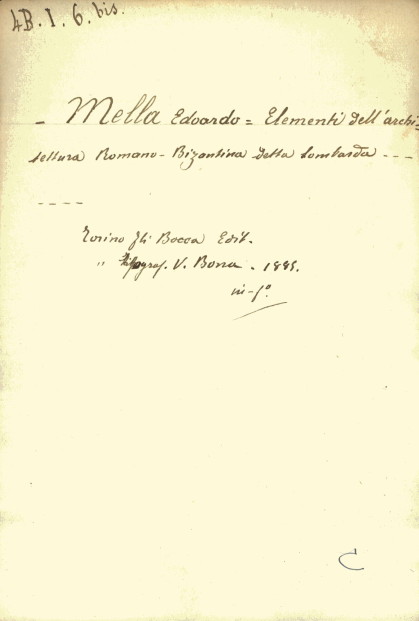 4B. I. 6. bis.
- Mella Edoardo = Elementi dell'archi-
tettura Romano-Bizantina detta Lombarda - - -
- - - -
Torino Fli Bocca Edit.
" Tipograf. V. Bona. - 1885.
in-fº
C